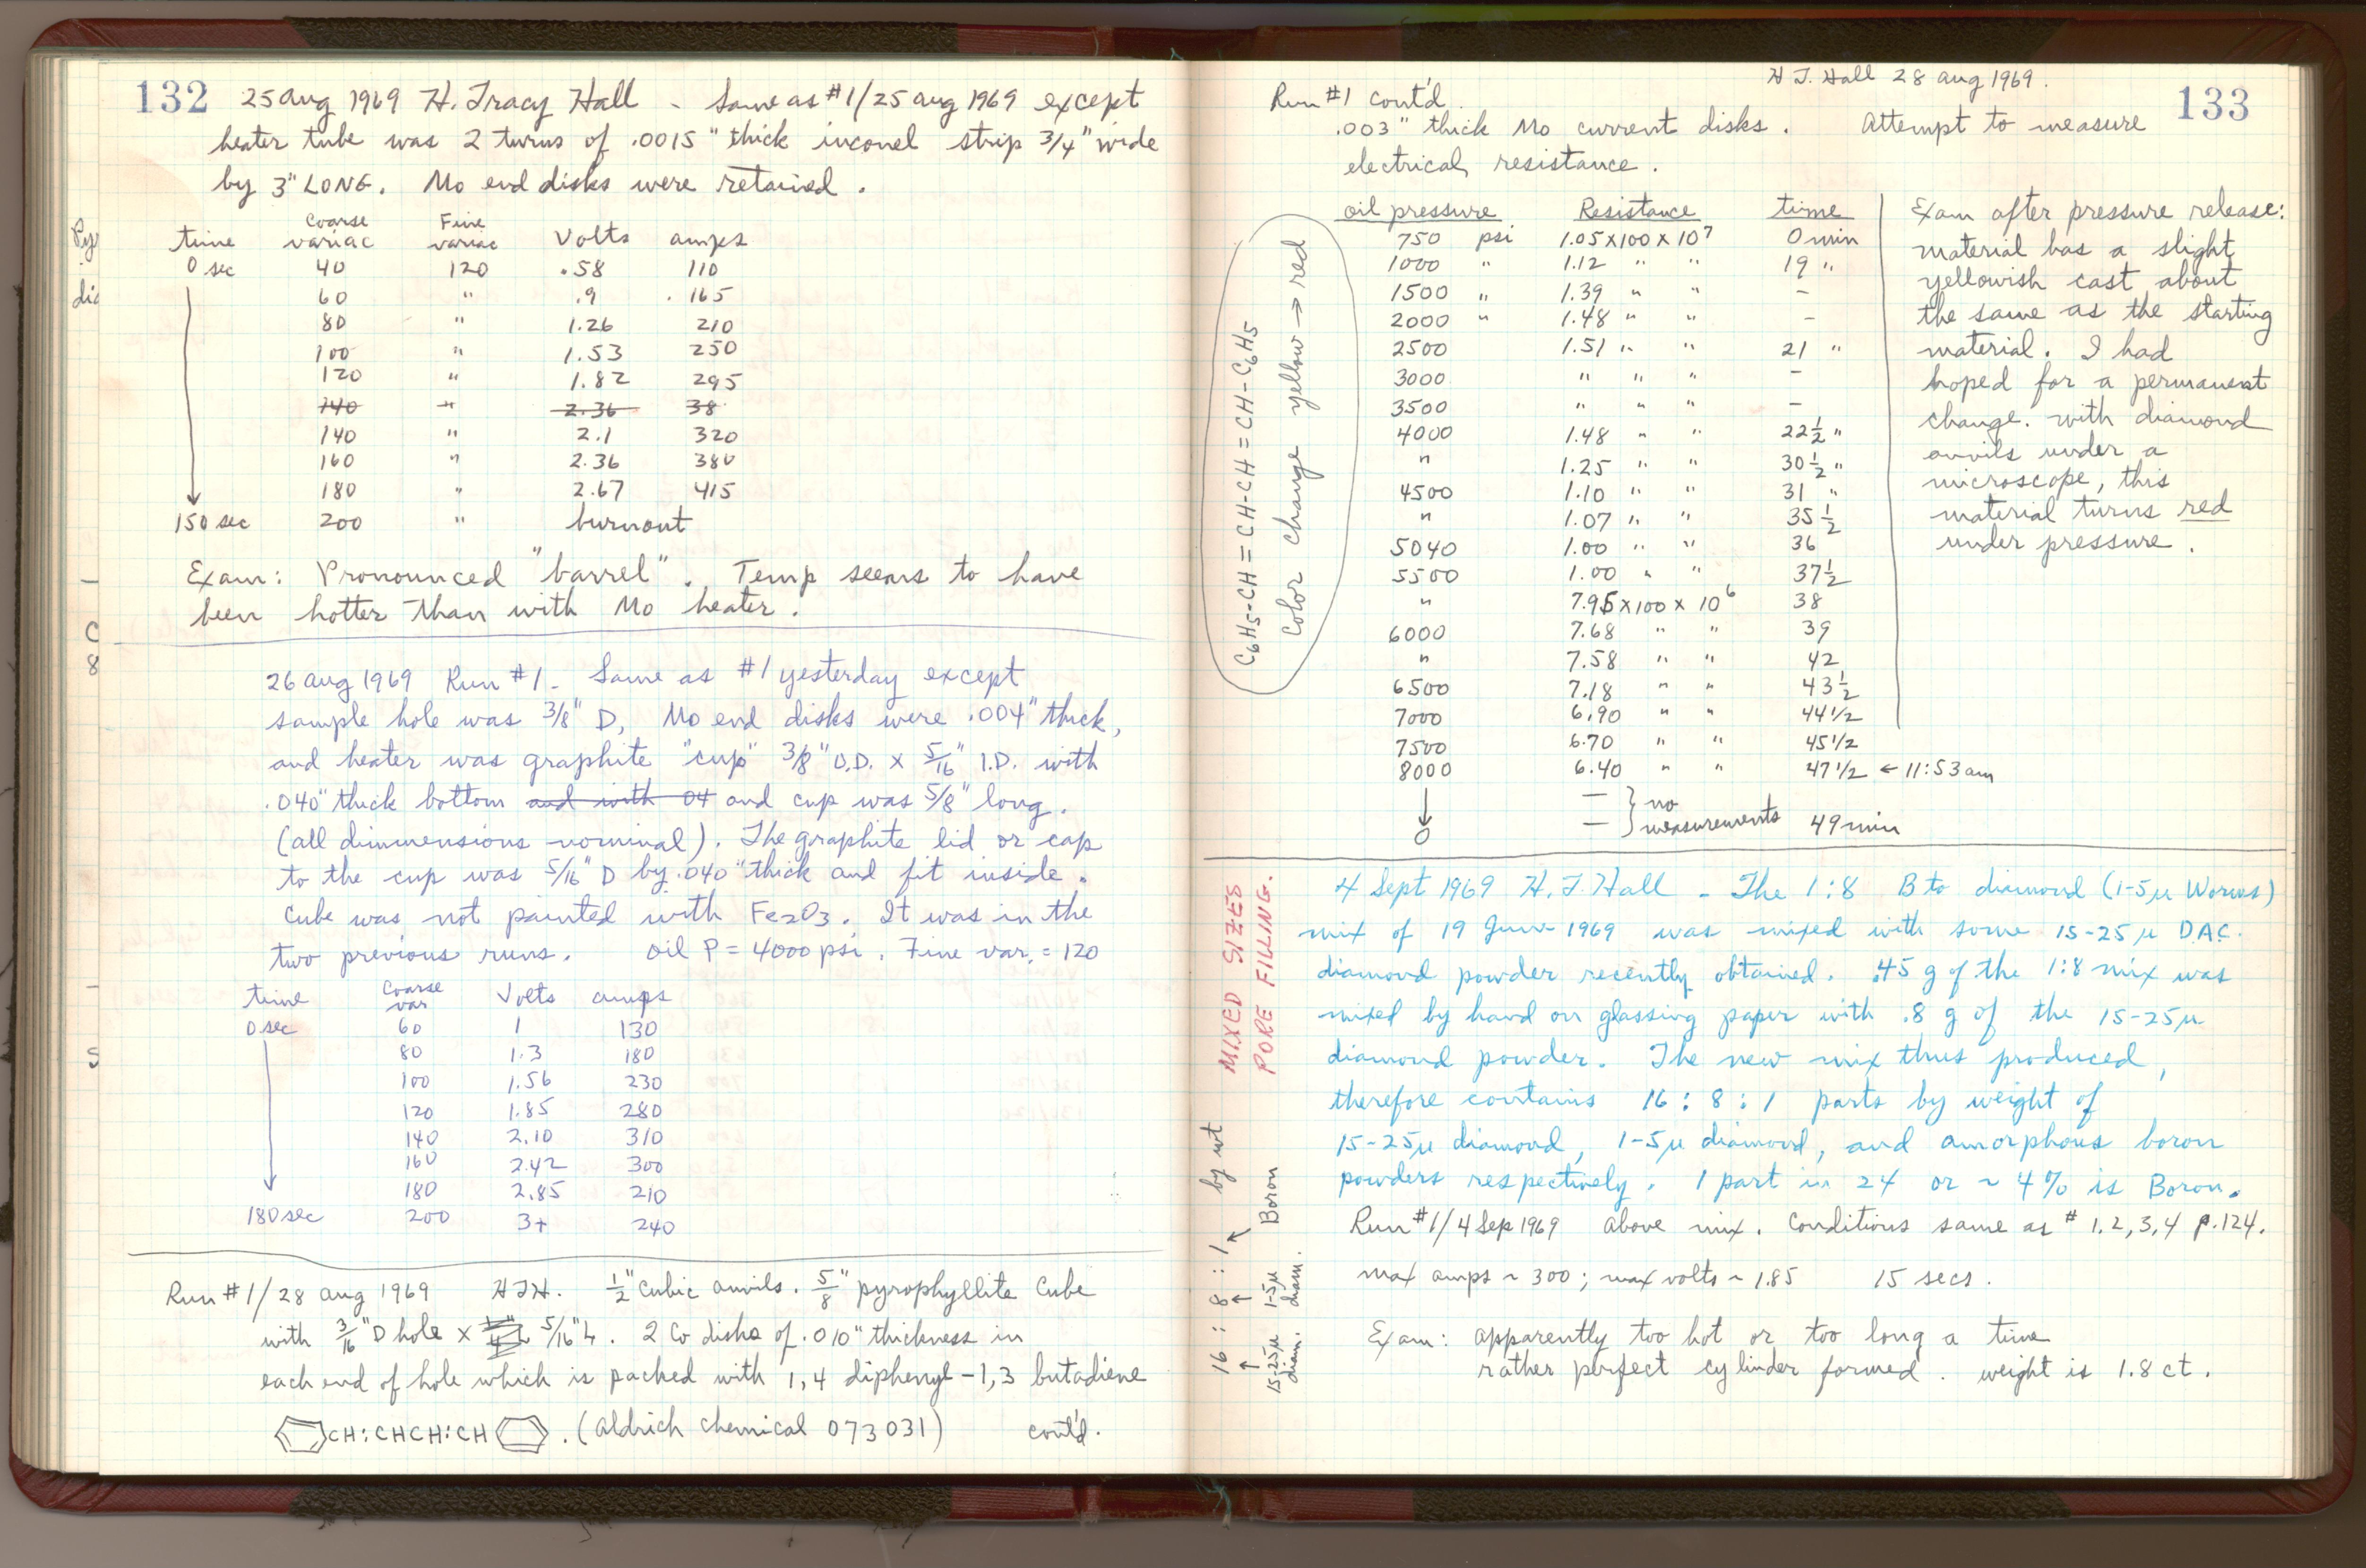 132 25 Aug 1969 H. Tracy Hall - Same as #1/25 aug 1969 except
heater tube was 2 turns of .0015" thick inconel strip 3/4" wide
by 3" LONG. Mo end disks were retained.
time Coarse variac Fine variac Volts amps
0 sec 40 120 .58 110
60 " .9 165
80 " 1.26 210
100 " 1.53 250
120 " 1.82 295
140 " 2.36 38
140 " 2.1 320
160 " 2.36 380
180 " 2.67 415
150 sec 200 " burnout
Exam: Pronounced "barrel". Temp seems to have
been hotter than with Mo heater.
26 aug 1969 Run #1 - Same as #1 yesterday except
sample hole was 3/8" D, Mo end disks were .004" thick,
and heater was graphite "cup" 3/8" O.D. x 5/16" I.D. with
.040" thick bottom and with 04 and cup was 5/8" long.
(all dimmensions nominal). The graphite lid or cap
to the cup was 5/16" D by .040" thick and fit inside.
Cube was not painted with Fe2O3. It was in the
two previous runs. oil P = 4000 psi. Fine var. = 120
time Coarse var Volts amps
0 sec 60 1 130
80 1.3 180
100 1.56 230
120 1.85 280
140 2.10 310
160 2.42 300
180 2.85 210
180 sec 200 3+ 240
Run #1/28 aug 1969 HTH. 1/2" cubic anvils. 5/8" pyrophyllite Cube
with 3/16" D hole x 5/16" L. 2 Co disks of .010" thickness in
each end of hole which is packed with 1,4 diphenyl-1,3 butadiene
CH:CHCH:CH . (Aldrich Chemical 073031) cont'd.
H T. Hall 28 aug 1969.
133
Run #1 cont'd.
.003" thick Mo current disks. Attempt to measure
electrical resistance.
oil pressure Resistance time
750 psi 1.05 x 100 x 10^7 0 min
1000 " 1.12 " " 19 "
1500 " 1.39 " " -
2000 " 1.48 " " -
2500 1.51 " " 21 "
3000 " " " -
3500 " " " -
4000 1.48 " " 22 1/2 "
" 1.25 " " 30 1/2 "
4500 1.10 " " 31 "
" 1.07 " " 35 1/2
5040 1.00 " " 36
5500 1.00 " " 37 1/2
" 7.95 x 100 x 10^6 38
6000 7.68 " " 39
" 7.58 " " 42
6500 7.18 " " 43 1/2
7000 6.90 " " 44 1/2
7500 6.70 " " 45 1/2
8000 6.40 " " 47 1/2 ← 11:53 am
↓ - } no
0 - } measurements 49 min
Exam after pressure release:
material has a slight
yellowish cast about
the same as the starting
material. I had
hoped for a permanent
change. with diamond
anvils under a
microscope, this
material turns red
under pressure.
C6H5-CH=CH-CH=CH-C6H5
Color change yellow → red
4 Sept 1969 H. T. Hall - The 1:8 B to diamond (1-5μ Worvus)
mix of 19 June 1969 was mixed with some 15-25μ D.A.C.
diamond powder recently obtained. .45 g of the 1:8 mix was
mixed by hand on glassing paper with .8 g of the 15-25μ
diamond powder. The new mix thus produced,
therefore contains 16:8:1 parts by weight of
15-25μ diamond, 1-5μ diamond, and amorphous boron
powders respectively. 1 part in 24 or ~ 4% is Boron.
Run #1/4 Sep 1969 above mix. Conditions same as # 1,2,3,4 p.124.
max amps ~ 300; max volts ~ 1.85 15 secs.
Exam: apparently too hot or too long a time
rather perfect cylinder formed. weight is 1.8 ct.
MIXED SIZES
PORE FILLING.
16 : 8 : 1 by wt
15-25μ diam. 1-5μ diam. Boron